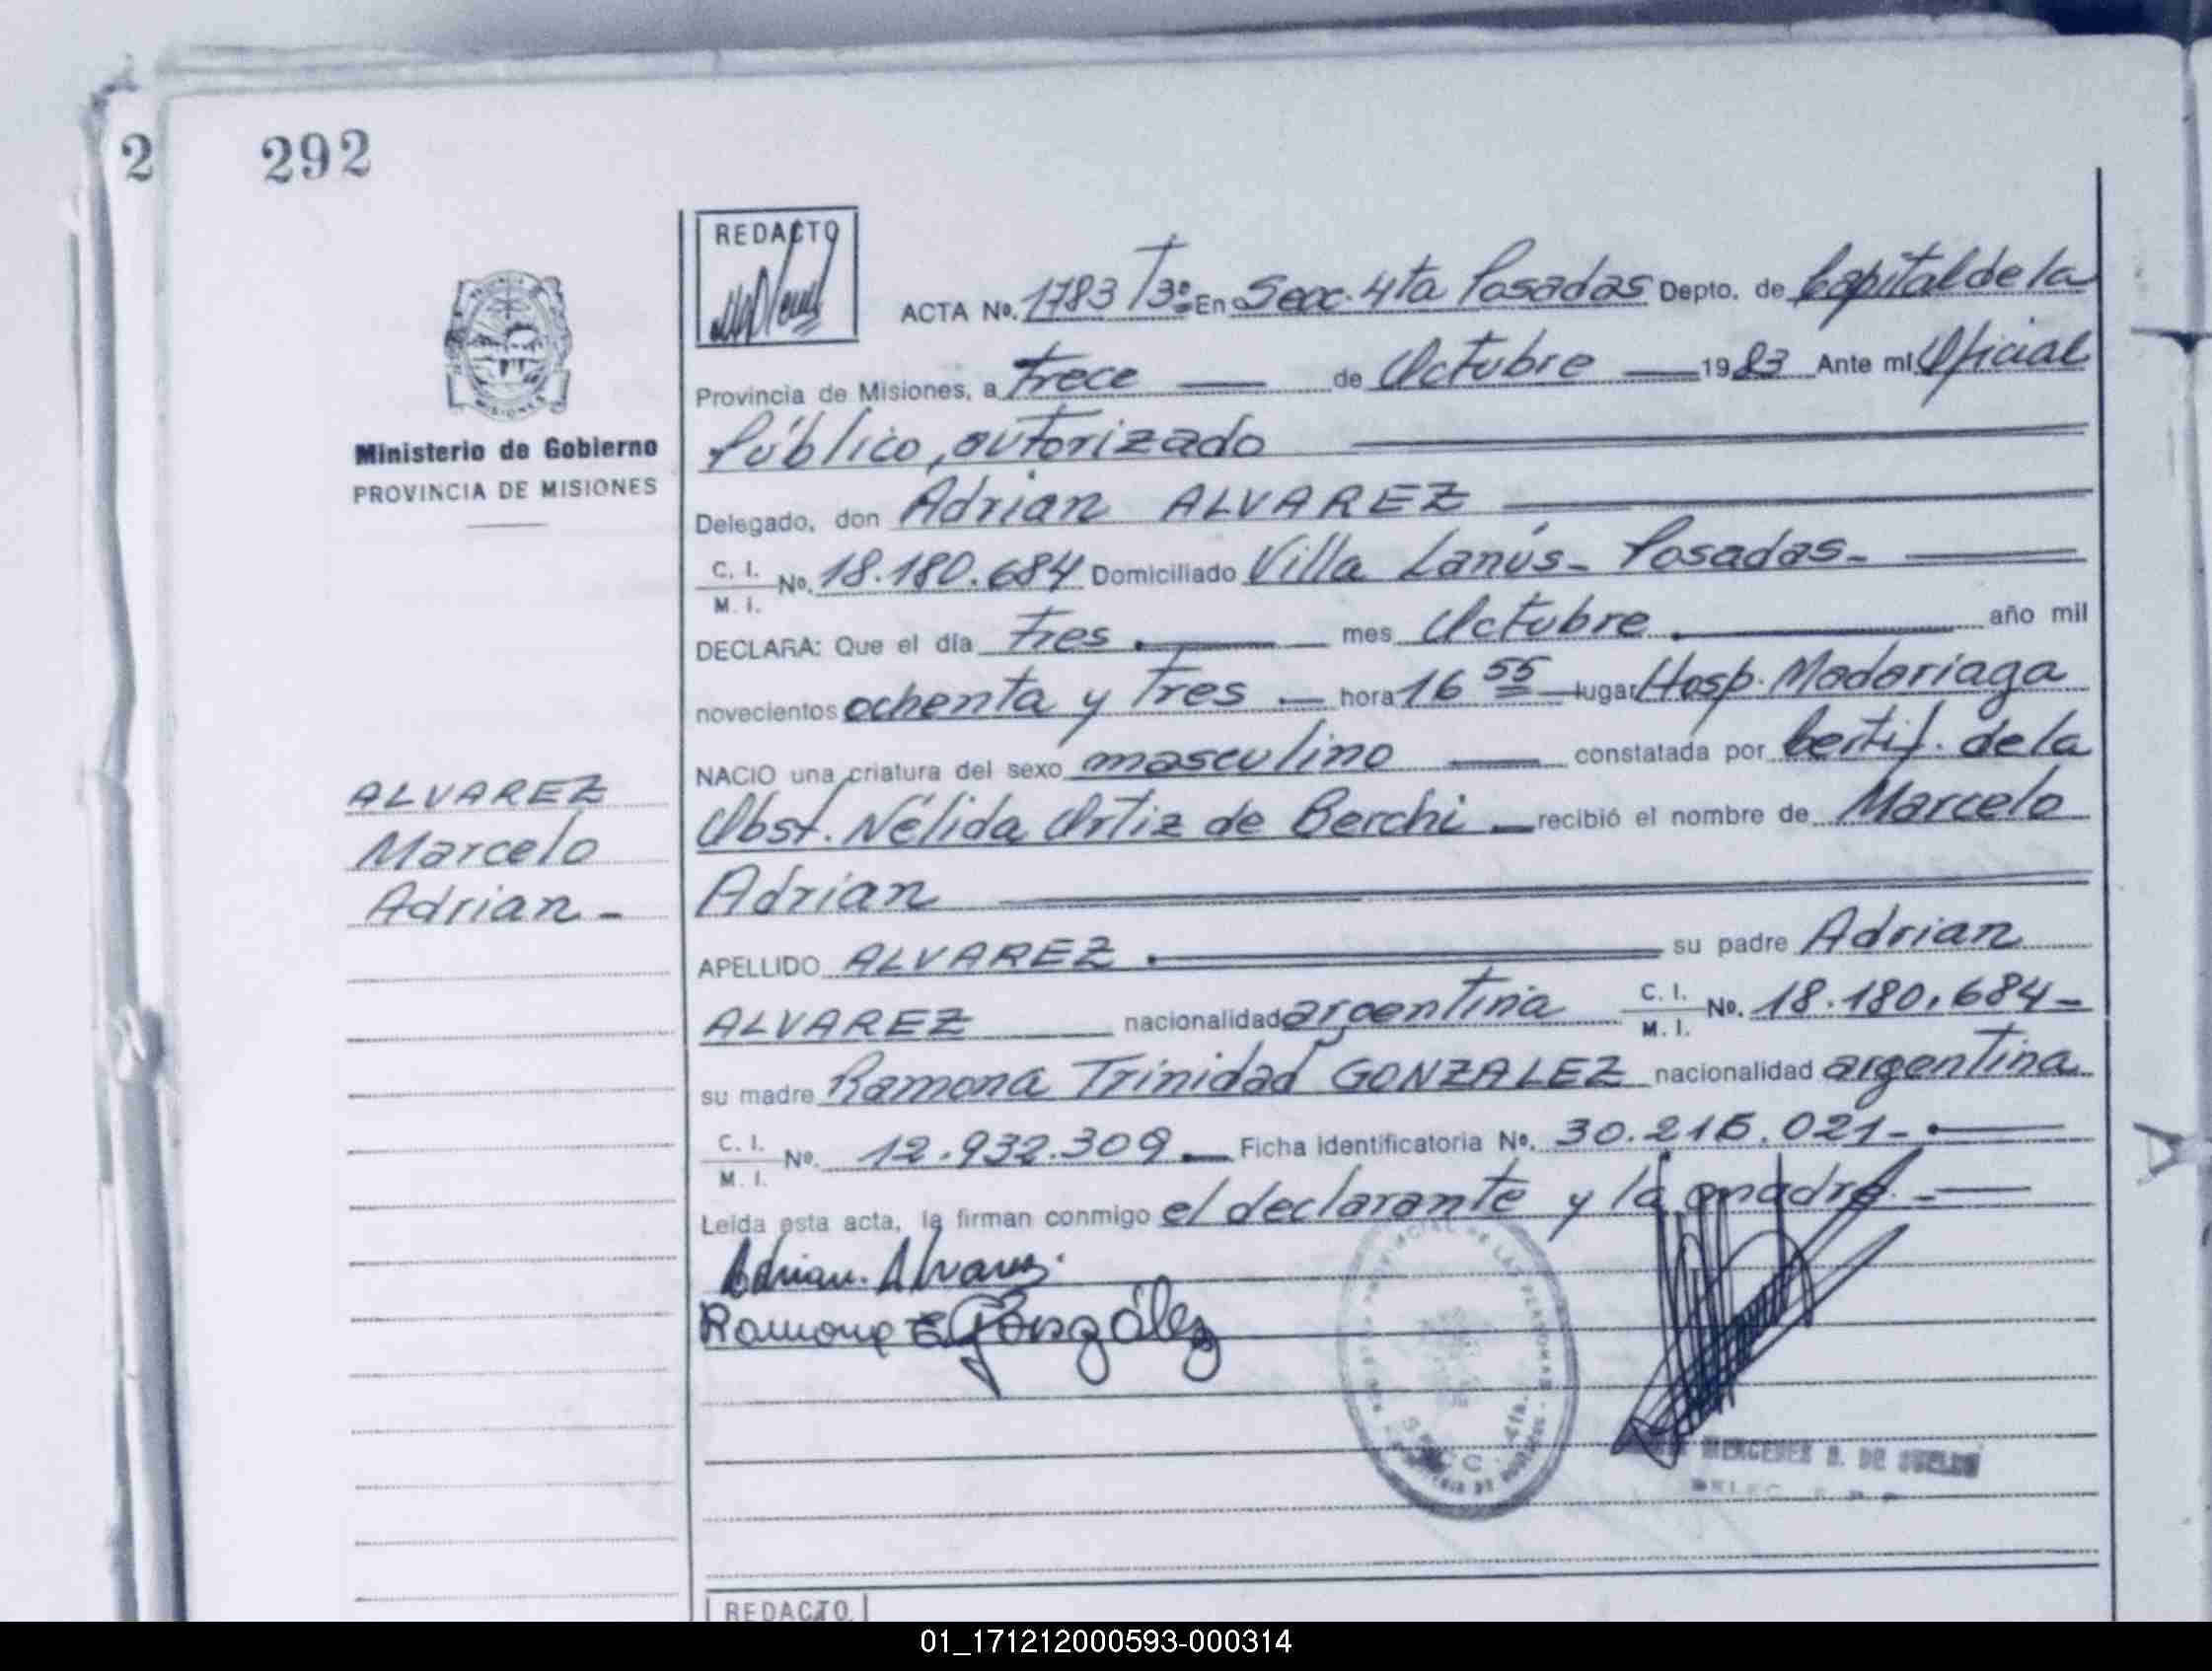 2
292
REDACTO
ACTA No. 1783 T3º En Secc. 4ta Posadas Depto. de Capital de la
Provincia de Misiones, a Trece de Octubre 1983 Ante mi Oficial
Ministerio de Gobierno
PROVINCIA DE MISIONES
Público, autorizado
Delegado, don Adrian ALVAREZ
C. I.
M. I. No. 18.180.684 Domiciliado Villa Lanús - Posadas -
DECLARA: Que el día Tres mes Octubre año mil
novecientos ochenta y Tres hora 16 55 lugar Hosp. Madariaga
NACIO una criatura del sexo masculino constatada por Certif. de la
Obst. Nélida Ortiz de Berchi recibió el nombre de Marcelo
Adrian
ALVAREZ
Marcelo
Adrian -
APELLIDO ALVAREZ su padre Adrian
ALVAREZ nacionalidad argentina C. I.
M. I. No. 18.180.684 -
su madre Ramona Trinidad GONZALEZ nacionalidad argentina
C. I.
M. I. No. 12.932.309 Ficha identificatoria No. 30.216.021 -
Leída esta acta, la firman conmigo el declarante y la madre. -
Adrian. Alvarez.
Ramona González
PROVINCIAL DE LAS PERSONAS
SECC. 4ta.
MERCEDES
REDACTO
01_171212000593-000314